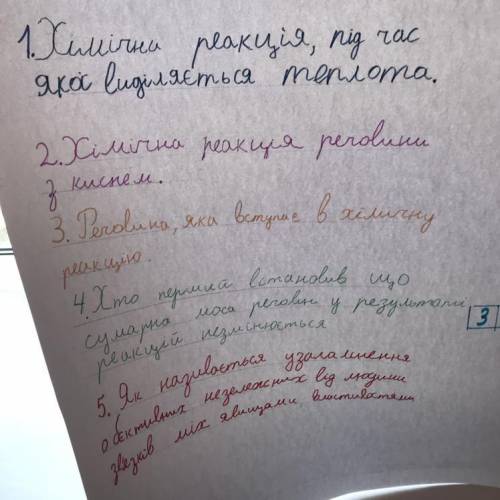 1. Хімічна реакція, під час
якої виділяється теплота.
2. Хімічна реакція речовини
з киснем.
3. Речовина, яка вступає в хімічну
реакцію.
4. Хто перший встановив що
сумарна маса речовин у результаті
реакцій незмінюється
3
5. Як називається узагальнення
обєктивних незалежних від людини
звязків між явищами властивостями